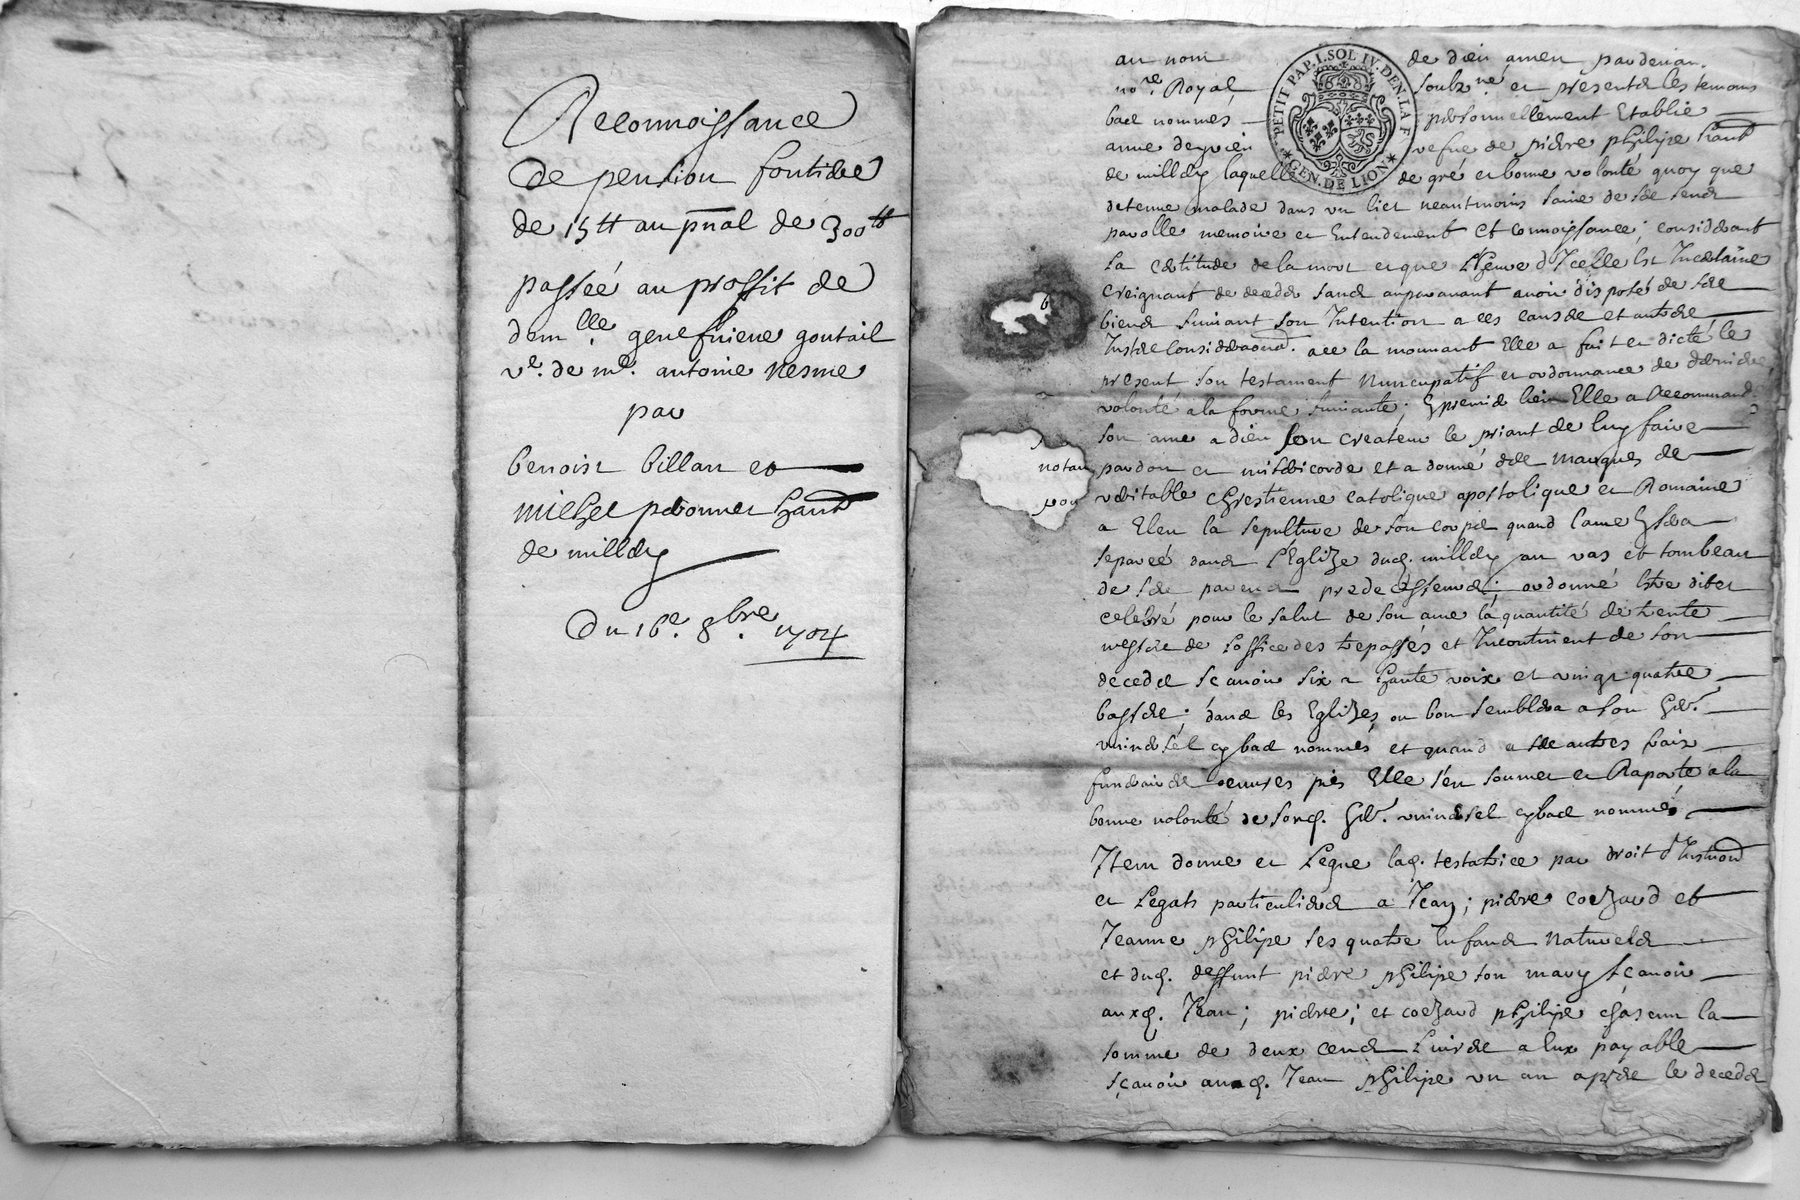 Reconnoissance
de pension fontiere
de 15tt au pnal de 300tt
passée au proffit de
demlle. genefuieue goutail
ve. de me. antoine nesme
par
benoist billau et
michel peronnet hant
de millery
Du 16e. 8bre. 1704
PETIT PAP. I. SOL IV. DEN. LA F
GEN. DE LION
au nom de dieu amen pardeuan.
nore. Royal soubzne et presents les temoins
bas nommes personnellement Establie
anne deyvieu vefue de pierre philipe hant
de millery laquelle de gré et bonne volonté quoy que
detenue malade dans un lict neantmoins saine de ses sens
parolle memoire et Entendement et connoissance; considerant
la certitude de la mort et que l'heure d'Icelle Est Incertaine
creignant de deceder sans auparauant auoir disposé de ses
biens suiuant son Intention a ces causes et autres
Justes considerations. a ce la mouuant Elle a fait et dicté le
present son testament nuncupatif et ordonnance de derniere
volonté a la forme suiuante; En premier lieu Elle a Recommandé
son ame a dieu son createur le priant de luy faire
notau
pardon et misericorde et a donné des marques de
pou
veritable chrestienne catolique apostolique et Romaine
a Eleu la sepulture de son corps quand l'ame En sera
separeé dans l'Eglize dud. millery au vas et tombeau
de ses parens predecesseurs; ordonné Estre dit et
celebré pour le salut de son ame la quantité de trente
messes de l'office des trepassés et Incontinent de son
deceds sçauoir six a haute voix et vingt quatre
basses; dans les Eglizes ou bon semblera a son her.
vniuersel cy bas nommés et quand a ses autres frais
funeraires oeuures pies Elle s'en soumet et Raporte a la
bonne volonté de sond. her. vniuersel cy bas nommés
Item donne et legue lad. testatrice par droit d'Instiōn
et legats particuliers a Jean; pierre coezard et
Jeanne philipe ses quatre Enfans naturels
et dud. deffunt pierre philipe son mary sçauoir
auxd. Jean; pierre; et coezard philipe chascun la
somme de deux cens liures a Eux payable
sçauoir aud. Jean philipe vn an apres le deceds